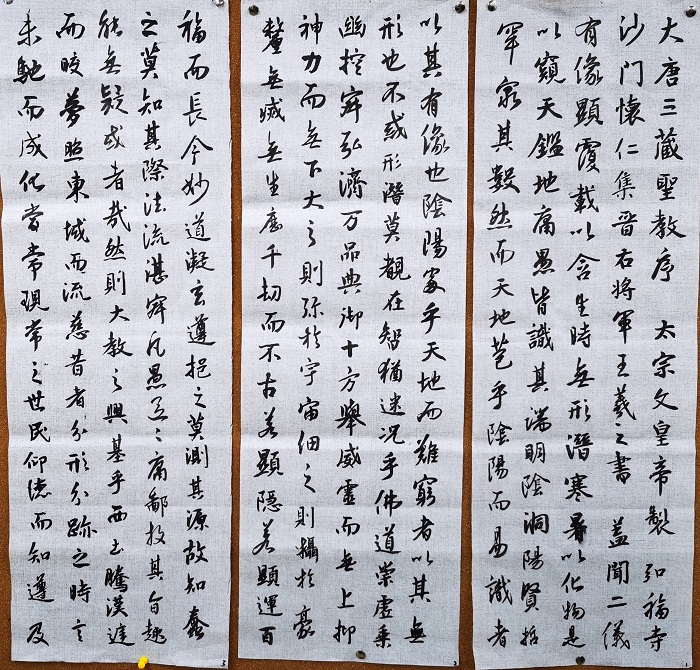 大唐三藏聖教序 太宗文皇帝製 弘福寺
沙門懷仁集晉右將軍王羲之書 蓋聞二儀
有像顯覆載以含生時無形潛寒暑以化物是
以窺天鑑地庸愚皆識其端明陰洞陽賢哲
罕窮其數然而天地苞乎陰陽而易識者
以其有像也陰陽處乎天地而難窮者以其無
形也不或形潛莫覩在智猶迷况乎佛道崇虛乘
幽控寂弘濟万品典御十方舉威靈而無上抑
神力而無下大之則弥於宇宙細之則攝於豪
釐無滅無生歷千劫而不古若顯隱若顯運百
福而長今妙道凝玄遵挹之莫測其源故知蠢
之莫知其際法流湛寂凡愚區々庸鄙投其旨趣
能無疑或者哉然則大教之興基乎西土騰漢庭
而晈夢照東域而流慈昔者分形分跡之時言
未馳而成化當常現常之世民仰德而知遵及